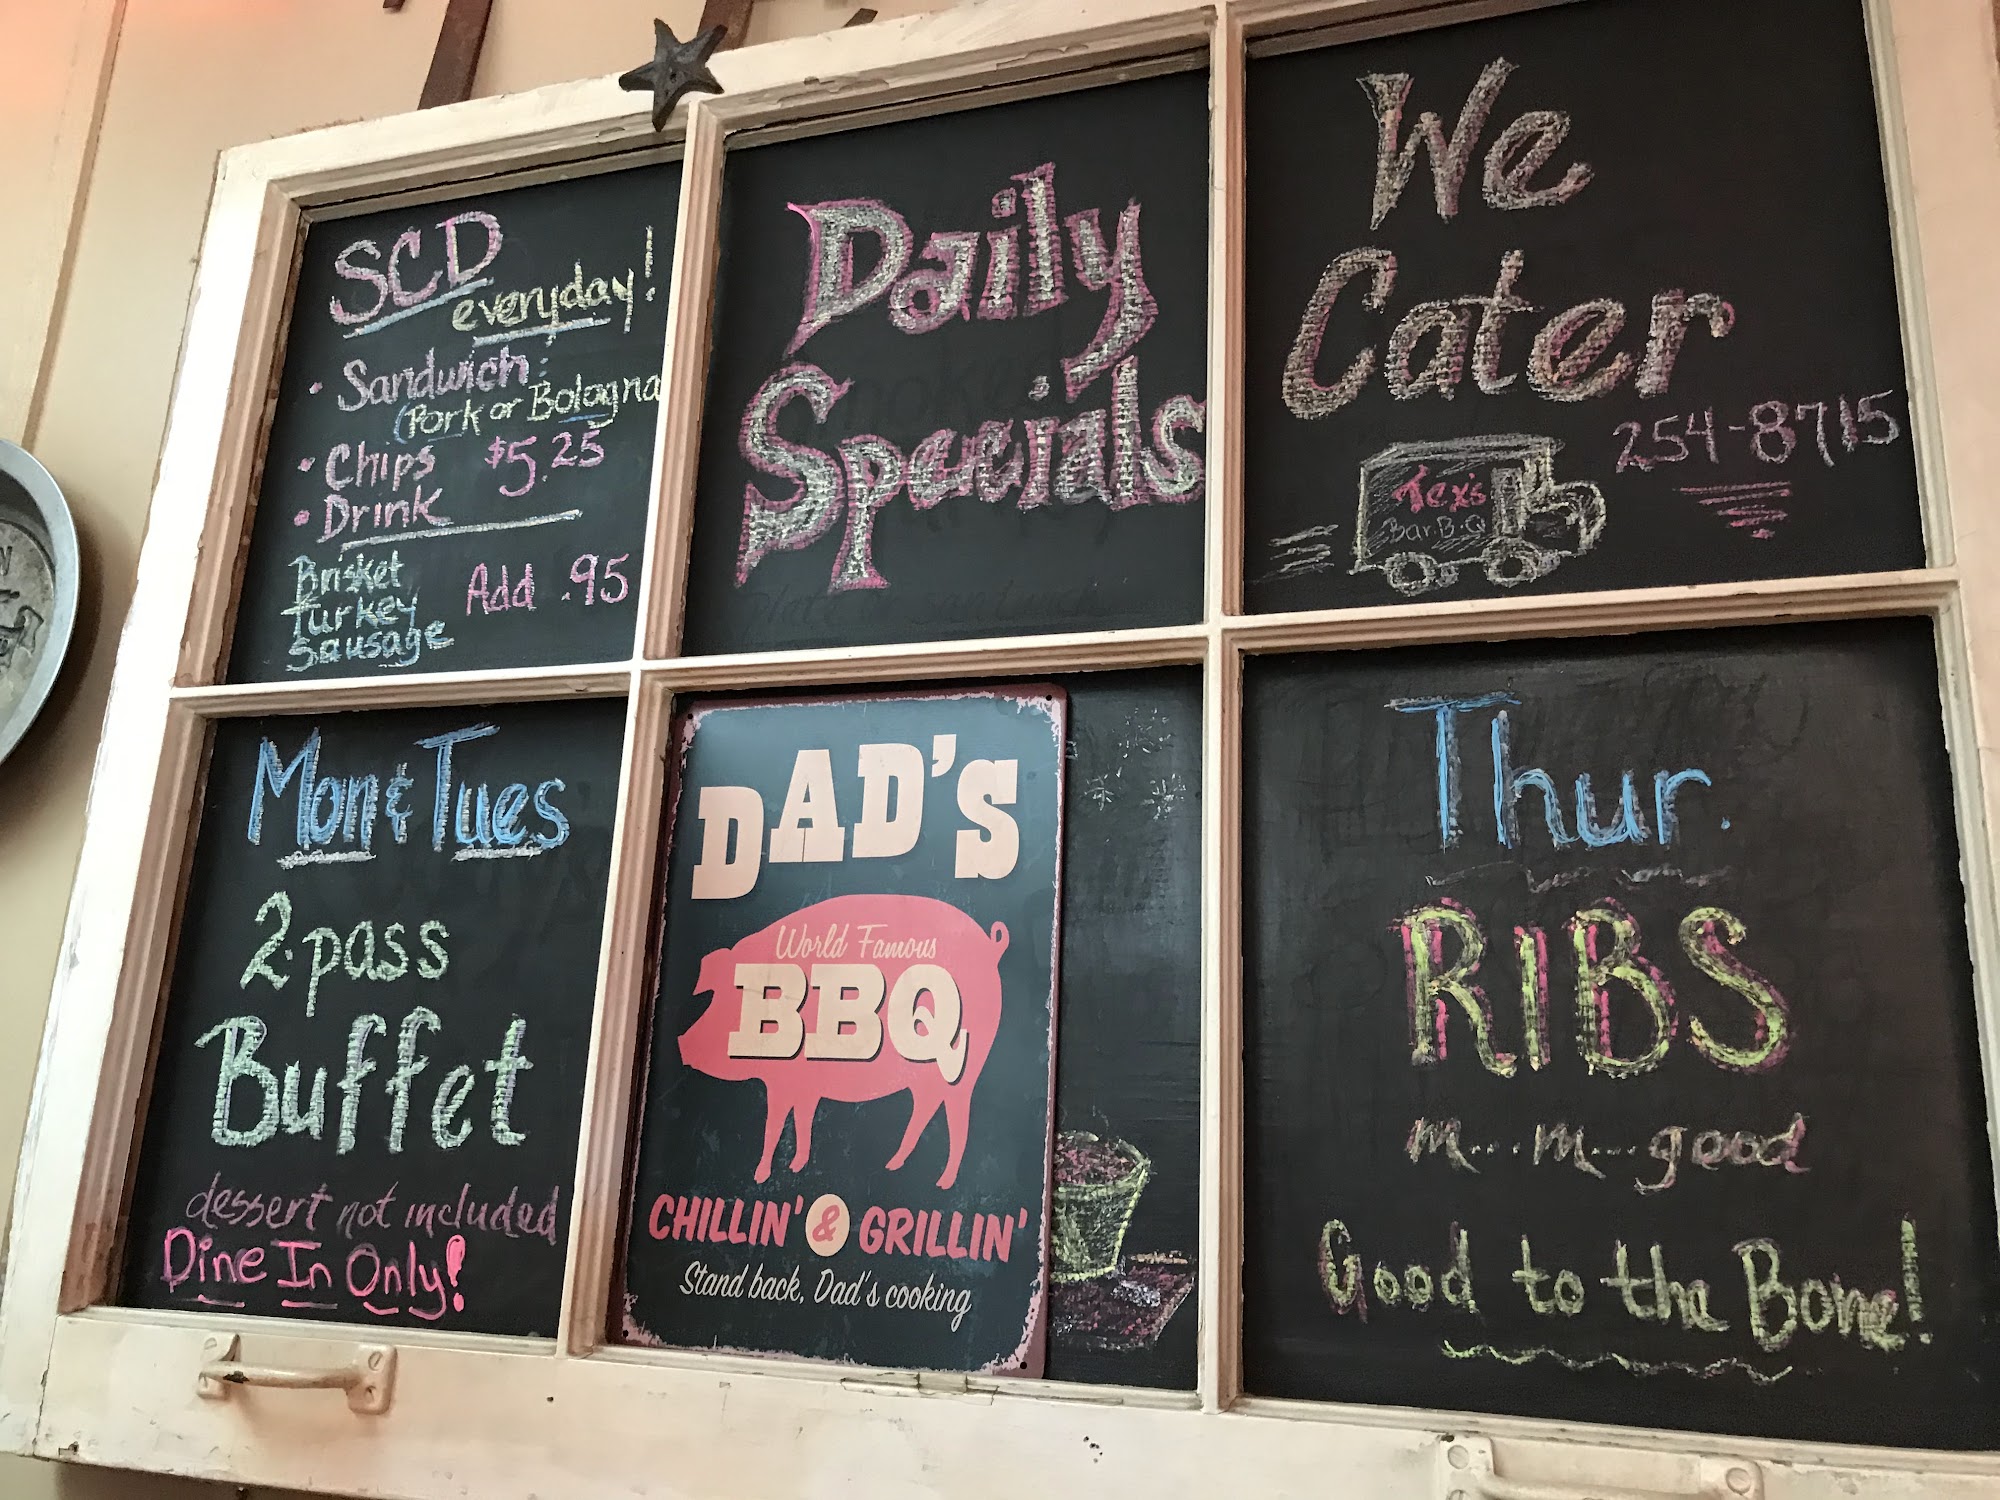 SCD
everyday!
• Sandwich:
(Pork or Bologna
• Chips $5.25
• Drink
Brisket
Turkey Add .95
Sausage
Daily
Specials
We
Cater
254-8715
Tex's
Bar.B.Q
Mon & Tues
2.pass
Buffet
dessert not included
Dine In Only!
DAD'S
World Famous
BBQ
CHILLIN' & GRILLIN'
Stand back, Dad's cooking
Thur.
RIBS
m...m...good
Good to the Bone!